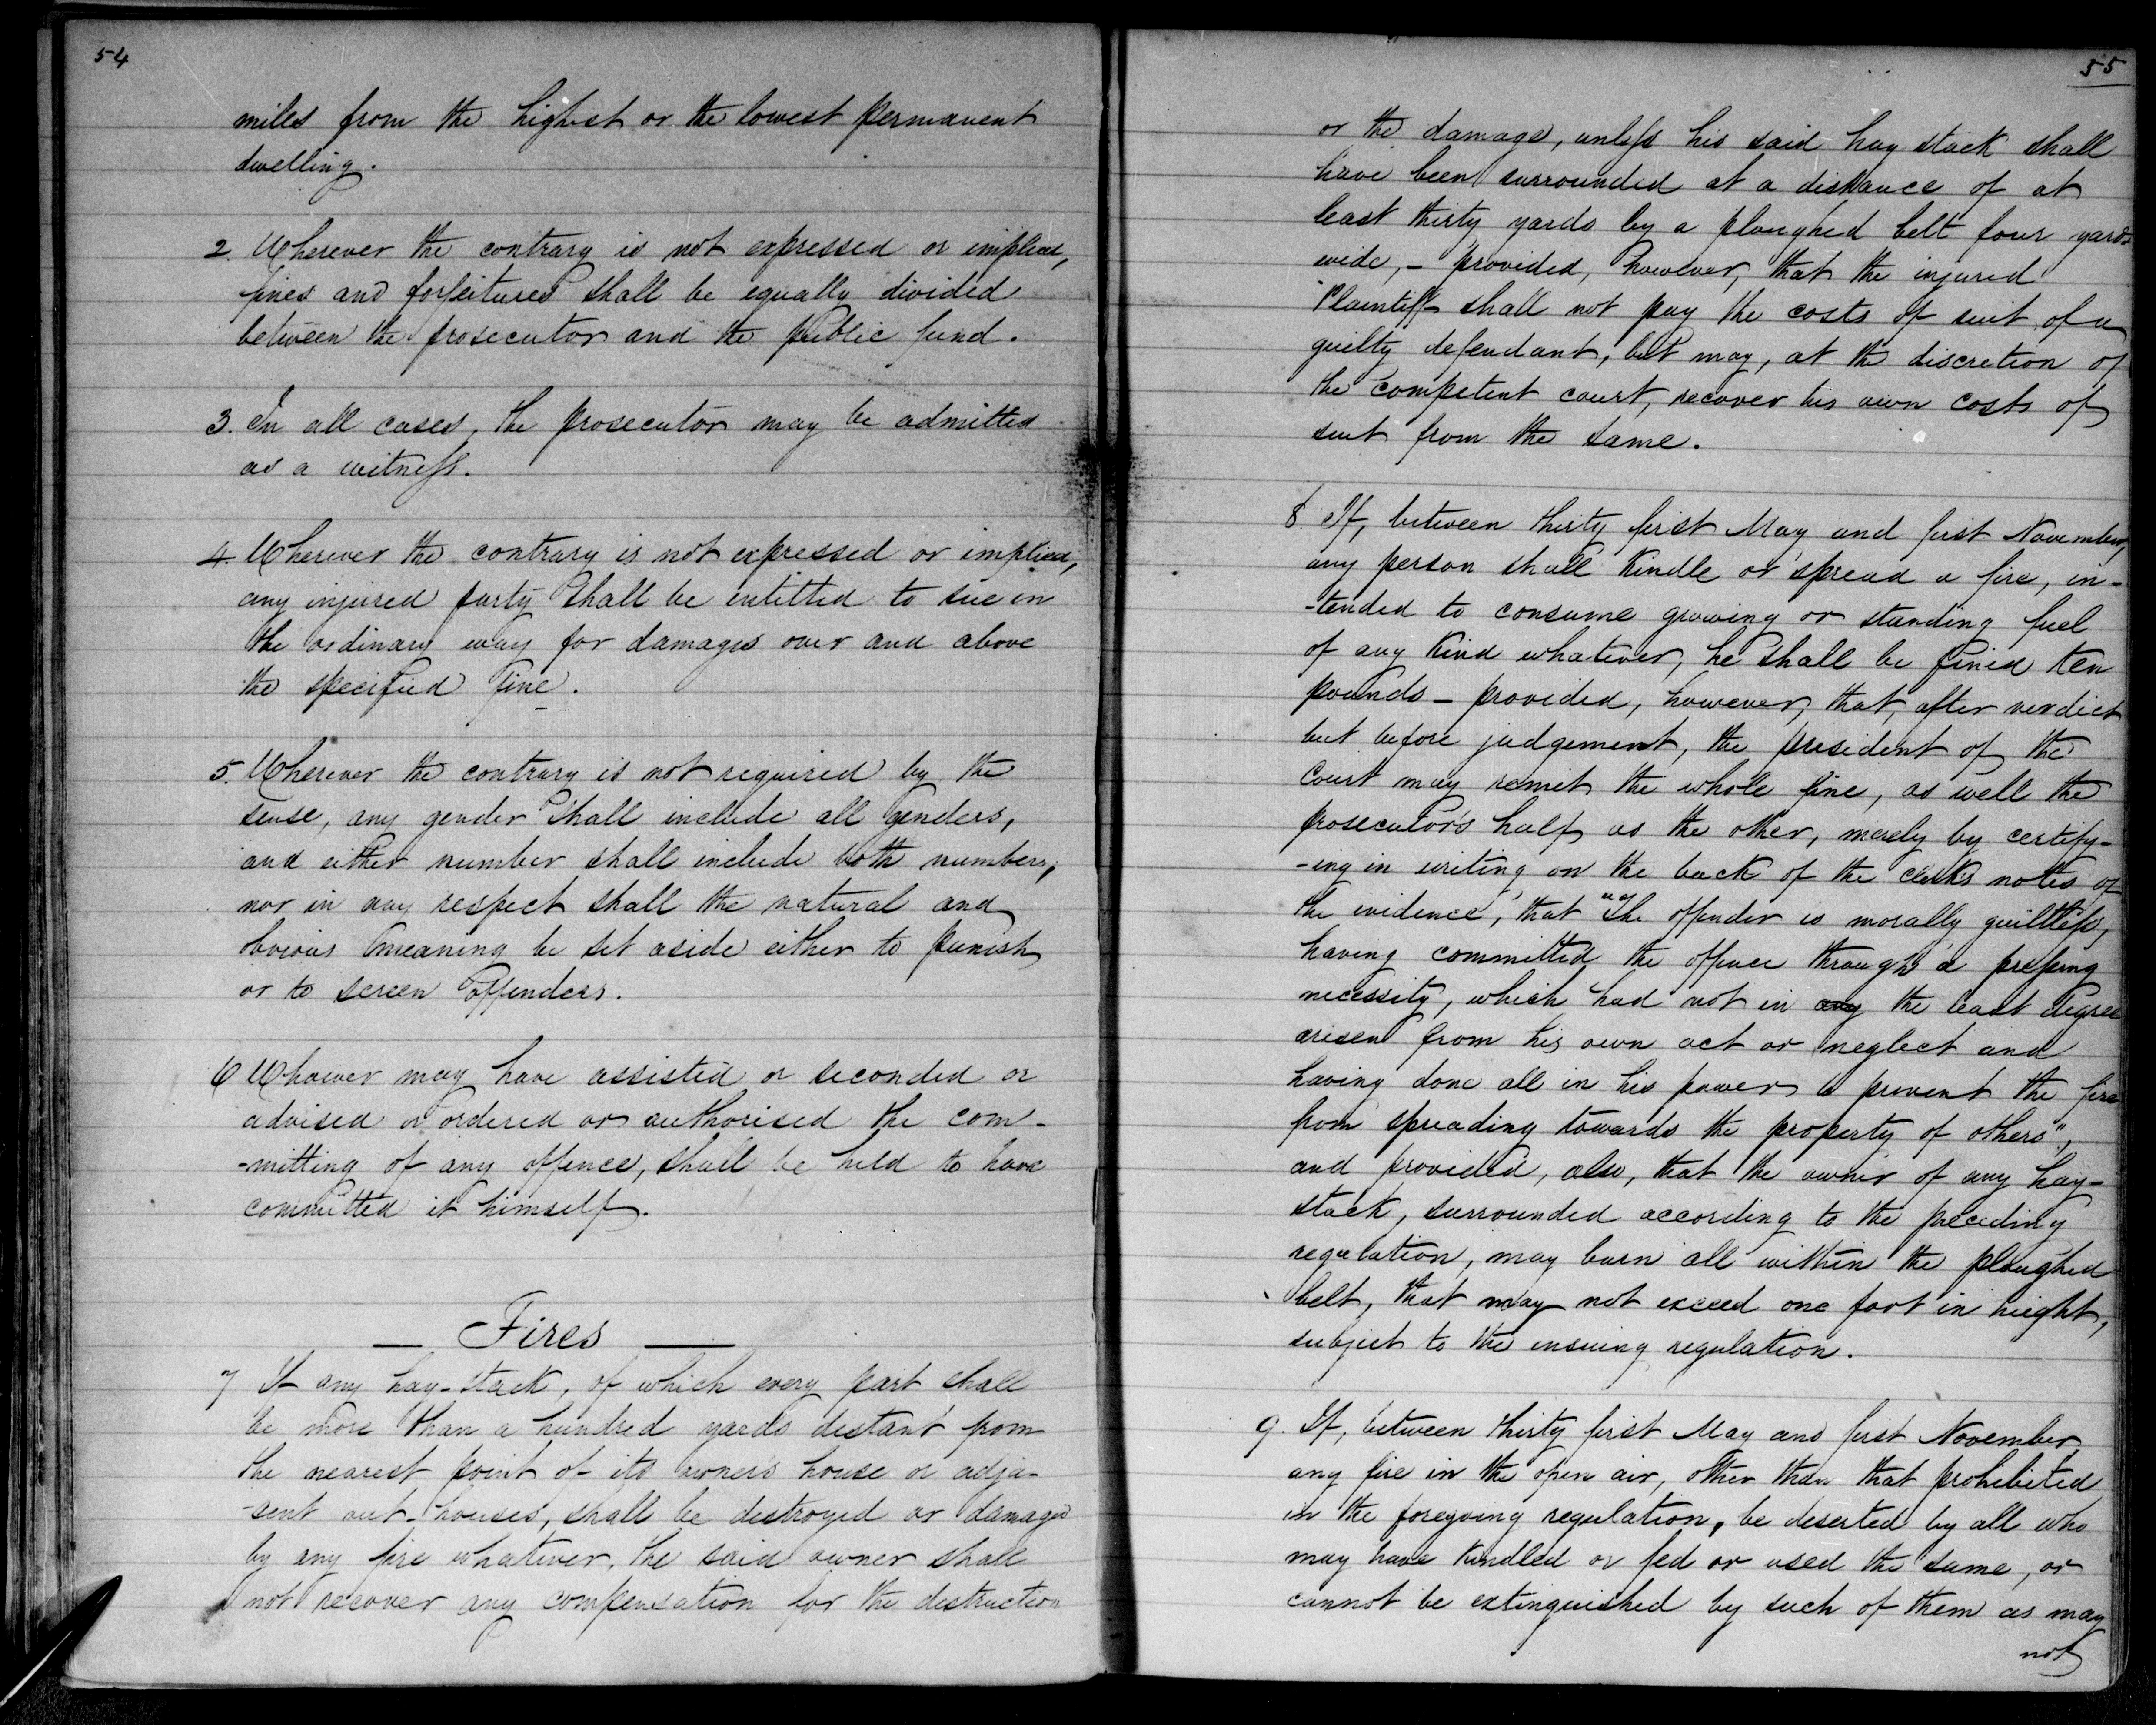 54
miles from the highest or the lowest permanent
dwelling.
2. Wherever the contrary is not expressed or implied,
fines and forfeitures shall be equally divided
between the prosecutor and the public fund.
3. In all cases, the prosecutor may be admitted
as a witness.
4. Wherever the contrary is not expressed or implied,
any injured party shall be entitled to sue in
the ordinary way for damages over and above
the specified fine.
5. Wherever the contrary is not required by the
sense, any gender shall include all genders,
and either number shall include both numbers,
nor in any respect shall the natural and
obvious meaning be set aside either to punish
or to screen offenders.
6 Whoever may have assisted or seconded or
advised or ordered or authorised the com-
-mitting of any offence, shall be held to have
committed it himself.
— Fires —
7 If any hay-stack, of which every part shall
be more than a hundred yards distant from
the nearest point of its owners house or adja-
-sent out-houses, shall be destroyed or damaged
by any fire whatever, the said owner shall
not recover any compensation for the destruction
55
or the damage, unless his said hay stack shall
have been surrounded at a distance of at
least thirty yards by a ploughed belt four yards
wide, - provided, however, that the injured
Plaintiff shall not pay the costs of suit of a
guilty defendant, but may, at the discretion of
the competent court, recover his own costs of
suit from the same.
8. If, between thirty first May and first November,
any person shall kindle or spread a fire, in-
-tended to consume growing or standing fuel
of any kind whatever, he shall be fined ten
pounds - provided, however, that, after verdict
but before judgement, the president of the
Court may remit the whole fine, as well the
prosecutor's half as the other, merely by certify-
-ing in writing on the back of the clerk's notes of
the evidence, that "The offender is morally guiltless,
having committed the offence through a pressing
necessity, which had not in any the least degree
arisen from his own act or neglect and
having done all in his power to prevent the fire
from spreading towards the property of others",
and provided, also, that the owner of any hay-
stack, surrounded according to the preceding
regulation, may burn all within the ploughed
belt, that may not exceed one foot in height,
subject to the ensuing regulation.
9. If, between thirty first May and first November,
any fire in the open air, other than that prohibited
in the foregoing regulation, be deserted by all who
may have kindled or fed or used the same, or
cannot be extinguished by such of them as may
not